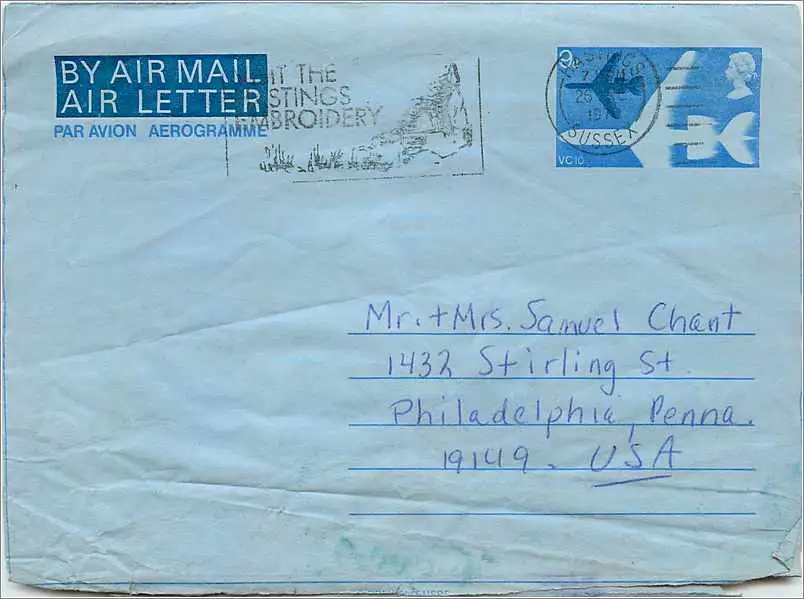 BY AIR MAIL
AIR LETTER
PAR AVION AEROGRAMME
THE
STINGS
EMBROIDERY
9
HASTINGS
SUSSEX
VC10
Mr. + Mrs. Samuel Chant
1432 Stirling St.
Philadelphia, Penna.
19149. USA